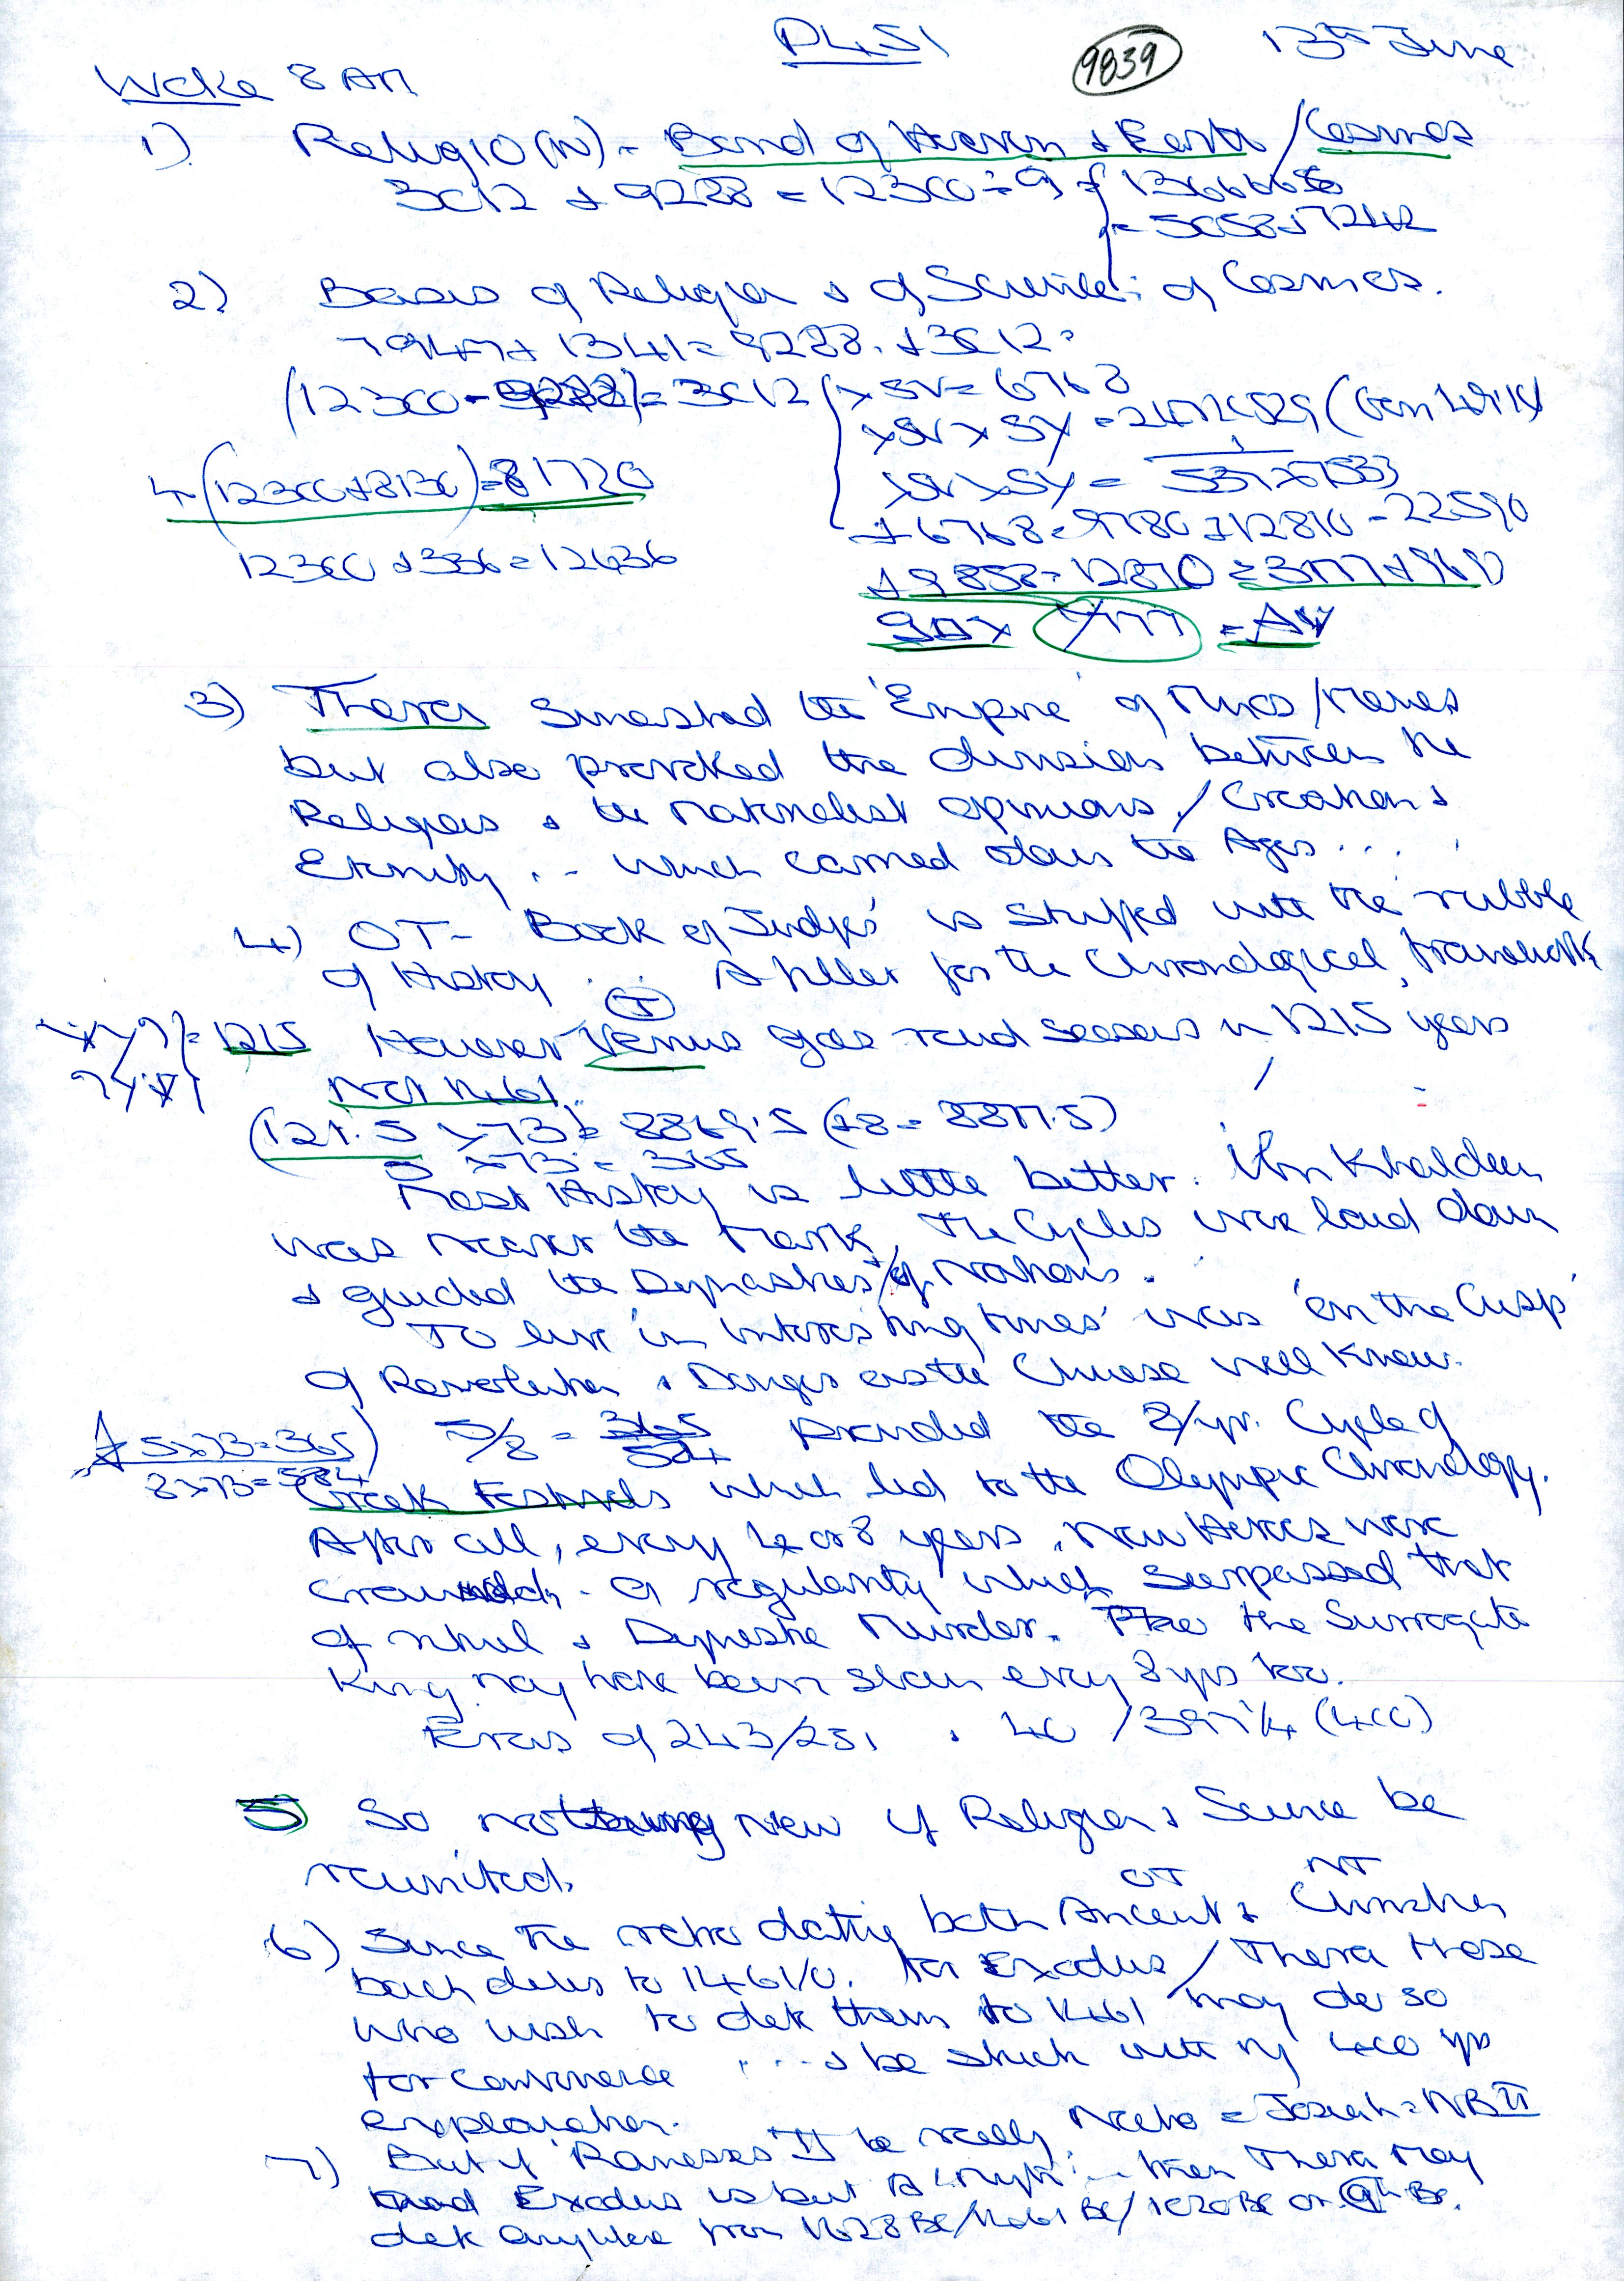 P451
9839
13th June
Woke 8 AM
1) Religio(N) - Bond of Heaven & Earth / Cosmos
3012 + 9288 = 12300 ÷ 9 = 1366.666
= 5058 + 7242
2) Bases of Religion & of Science: of Cosmos.
7947 + 1341 = 9288. + 3012 =
(12300 - 9288) = 3012 { x SV = 6768
4(12300 + 8130) = 81720
12300 + 336 = 12636
+ 6768 = 9780 + 12810 = 22590
+ 9858 = 12870
3) Thera smashed the 'Empire' of Minos / Menes
but also provoked the division between the
Religious & the Materialist opinions / Creation &
Eternity .. which carried down the Ages ...
4) OT - 'Book of Judges' is stuffed with the rubble
of History . A filler for the Chronological framework
= 1215 However Venus goes round seasons in 1215 years
Not 1461.
(121.5 x 73) = 8869.5 (+8 = 8877.5)
5 x 73 = 365
Most History is little better. Ibn Khaldun
was nearer the mark, The Cycles were laid down
& guided the Dynasties / of Nations.
To live 'in interesting times' was 'on the Cusp'
of Revolution & Danger as the Chinese well knew.
5x73=365
8x73=584
5/8 = 365/584 provided the 8/yr. Cycle of
Greek Festivals which led to the Olympic Chronology.
After all, every 4 or 8 years, new Heroes were
crowned - a regularity which surpassed that
of ritual & Dynastic Murder. the Surrogate
King may have been slain every 8 yrs too.
Eras of 243/251 . 40 / 397 1/4 (400)
5 So nothing new if Religion & Science be
reunited.
OT NT
6) Since the retro dating both Ancient & Christian
back dates to 1461/0. for Exodus / Thera those
who wish to date them to 1461 may do so
for convenience ... & be stuck with my 400 yrs
explanation.
7) But if Rameses II be really Necho = Josiah = NB II
and Exodus is but a 'Myth' .. then Thera may
date anywhere from 1628 BC/1461 BC/1020 BC or 9th BC.